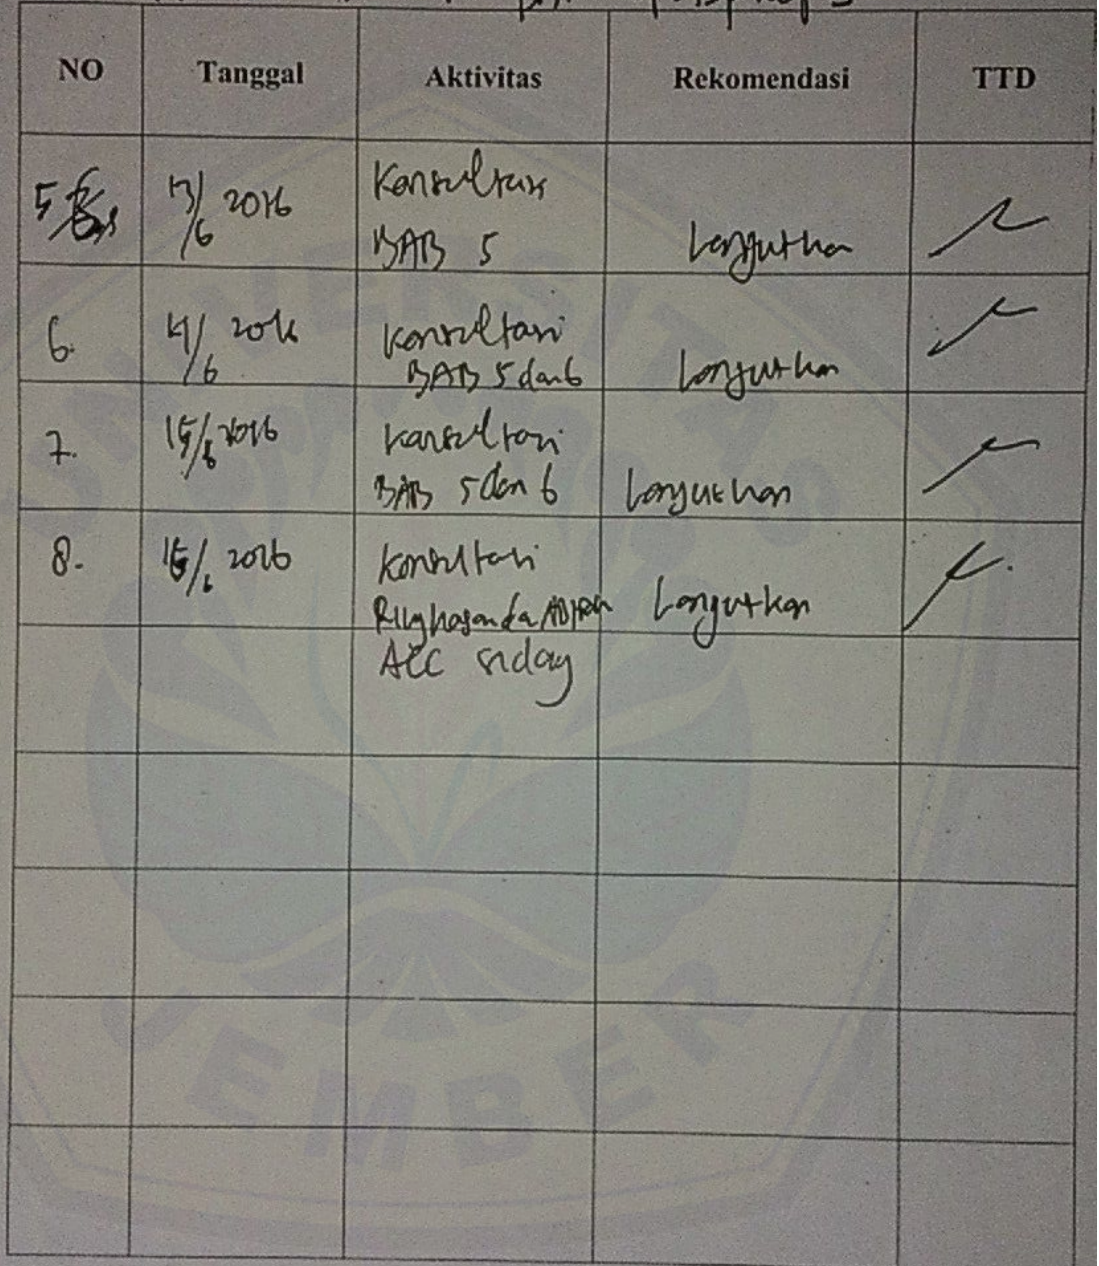 NO Tanggal Aktivitas Rekomendasi TTD
5 13/6 2016 Konsultasi
BAB 5 Lanjutkan
6. 14/6 2016 Konsultasi
BAB 5 dan 6 Lanjutkan
7. 15/6 2016 Konsultasi
BAB 5 dan 6 Lanjutkan
8. 2016 Konsultasi
Lanjutkan
ACC sidang
UNIVERSITAS
JEMBER